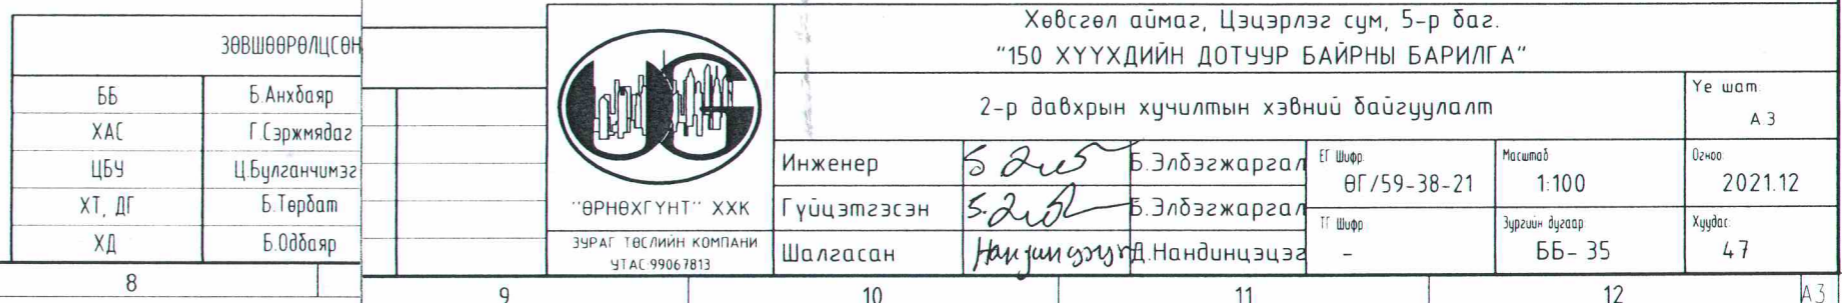 ЗӨВШӨӨРӨЛЦСӨН
ББ Б.Анхбаяр
ХАС Г.Сэржмядаг
ЦБУ Ц.Булганчимэг
ХТ, ДГ Б.Төрбат
ХД Б.Одбаяр
"ӨРНӨХГҮНТ" ХХК
ЗУРАГ ТӨСЛИЙН КОМПАНИ
УТАС:99067813
Хөвсгөл аймаг, Цэцэрлэг сум, 5-р баг.
"150 ХҮҮХДИЙН ДОТУУР БАЙРНЫ БАРИЛГА"
2-р давхрын хучилтын хэвний байгуулалт
Үе шат:
А.З
Инженер Б.Элбэгжаргал
Гүйцэтгэсэн Б.Элбэгжаргал
Шалгасан Нандинцэцэг Д.Нандинцэцэг
ЕГ Шифр:
ӨГ/59-38-21
ТГ Шифр:
-
Масштаб:
1:100
Зургийн дугаар:
ББ- 35
Огноо:
2021.12
Хуудас:
47
8 9 10 11 12 А3